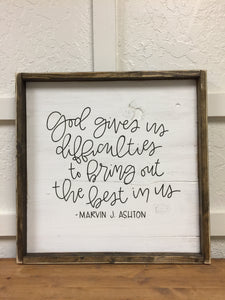 God gives us
difficulties
to bring out
the best in us
-MARVIN J. ASHTON